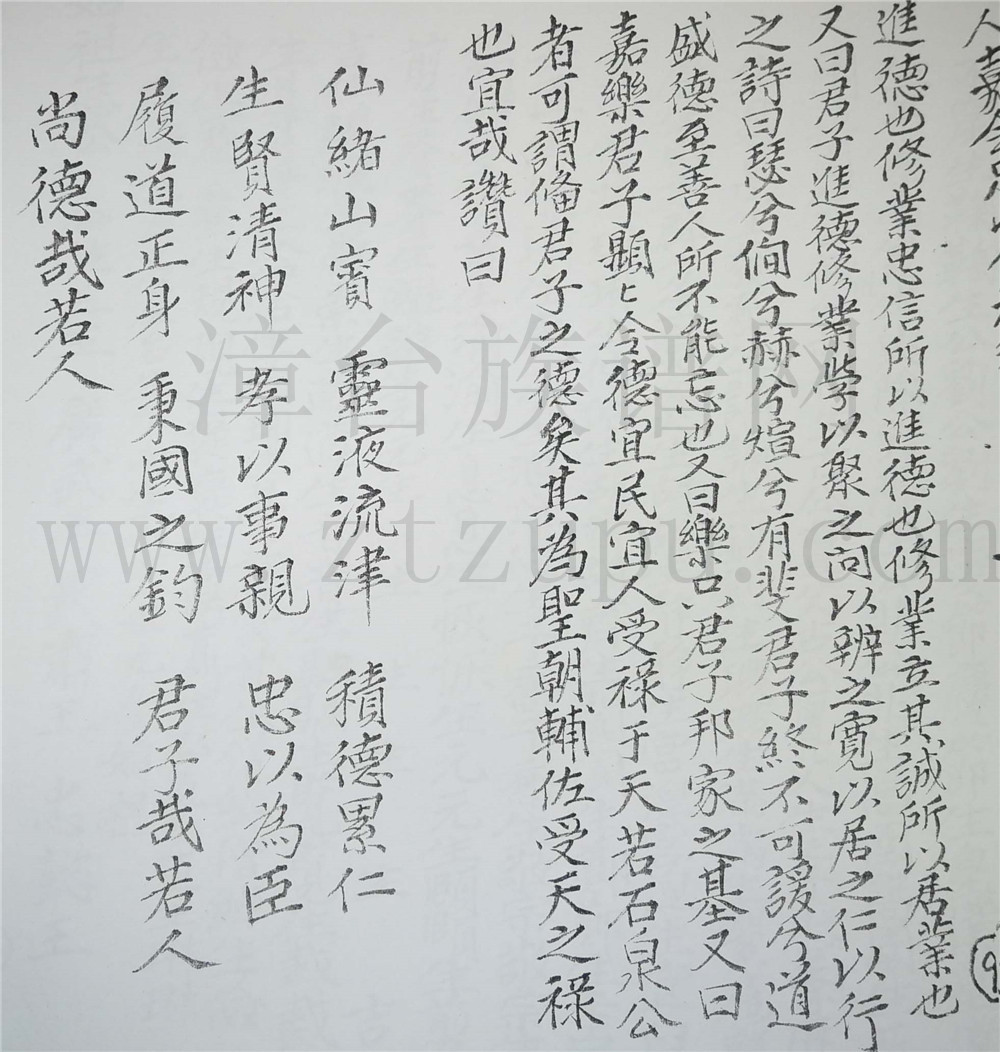 人嘉
進德也修業忠信所以進德也修業立其誠所以居業也
又曰君子進德修業學以聚之问以辨之寬以居之仁以行
之詩曰瑟兮僩兮赫兮煊兮有斐君子終不可諼兮道
盛德至善人所不能忘也又曰樂只君子邦家之基又曰
嘉樂君子顯〻令德宜民宜人受祿于天若石泉公
者可謂偹君子之德矣其為聖朝輔佐受天之祿
也宜哉讚曰
仙緒山賓 靈液流津 積德累仁
生賢清神 孝以事親 忠以為臣
履道正身 秉國之鈞 君子哉若人
尚德哉若人
9
漳台族谱网
www.ztzupu.com